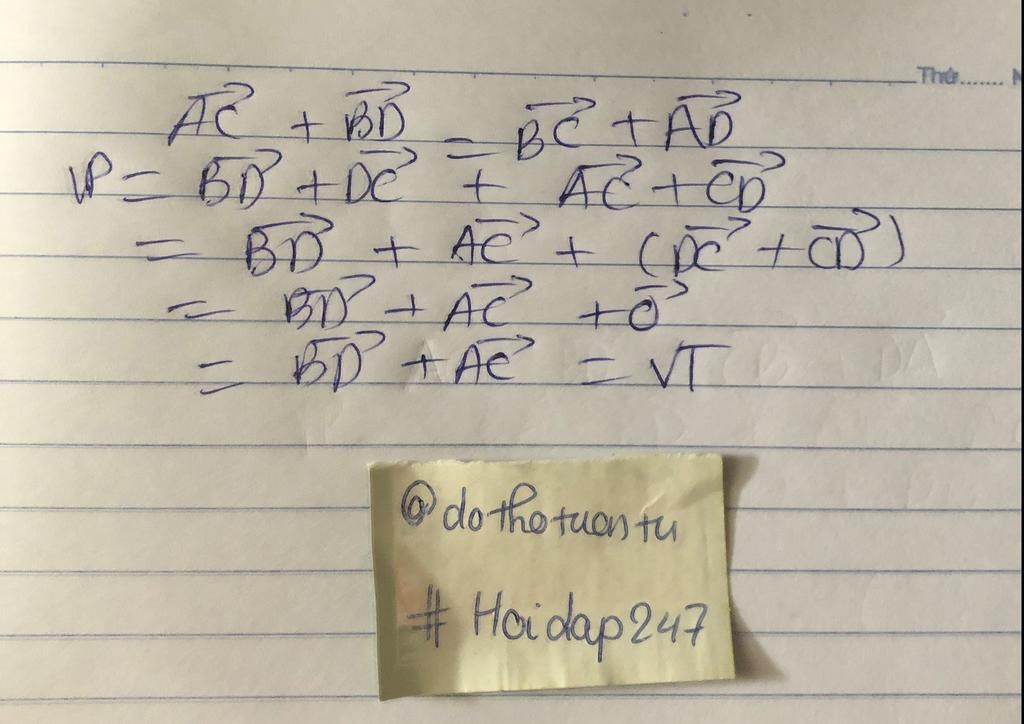 Thứ.......
AC⃗ + BD⃗ = BC⃗ + AD⃗
VP = BD⃗ + DC⃗ + AC⃗ + CD⃗
= BD⃗ + AC⃗ + (DC⃗ + CD⃗)
= BD⃗ + AC⃗ + O⃗
= BD⃗ + AC⃗ = VT
@dothotuantu
# Hoidap247